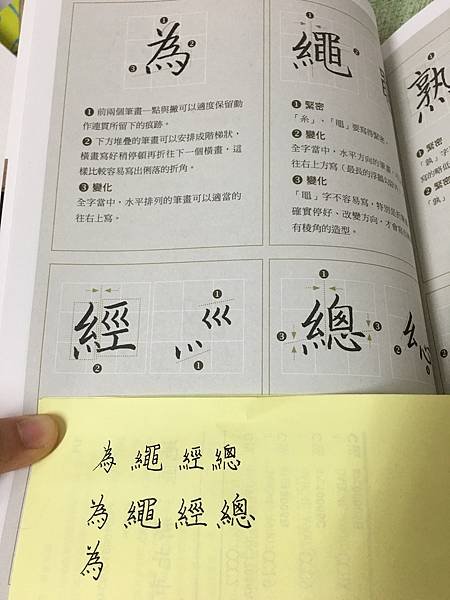 為
❶ 前兩個筆畫一點與撇可以適度保留動
作連貫所留下的痕跡。
❷ 下方堆疊的筆畫可以安排成階梯狀,
橫畫寫好稍停頓再折往下一個橫畫,這
樣比較容易寫出俐落的折角。
❸ 變化
全字當中,水平排列的筆畫可以適當的
往右上寫。
繩
❶ 緊密
「糸」、「黽」要寫得緊密。
❷ 變化
全字當中,水平方向的筆畫,
往右上方寫(最長的浮鵝
❸ 變化
「黽」字不容易寫,特別是折
確實停好、改變方向,才會
有稜角的造型。
熟
❶ 緊密
「孰」字
寫的略低
❷ 緊密
「孰」
經
總
為 繩 經 總
為 繩 經 總
為